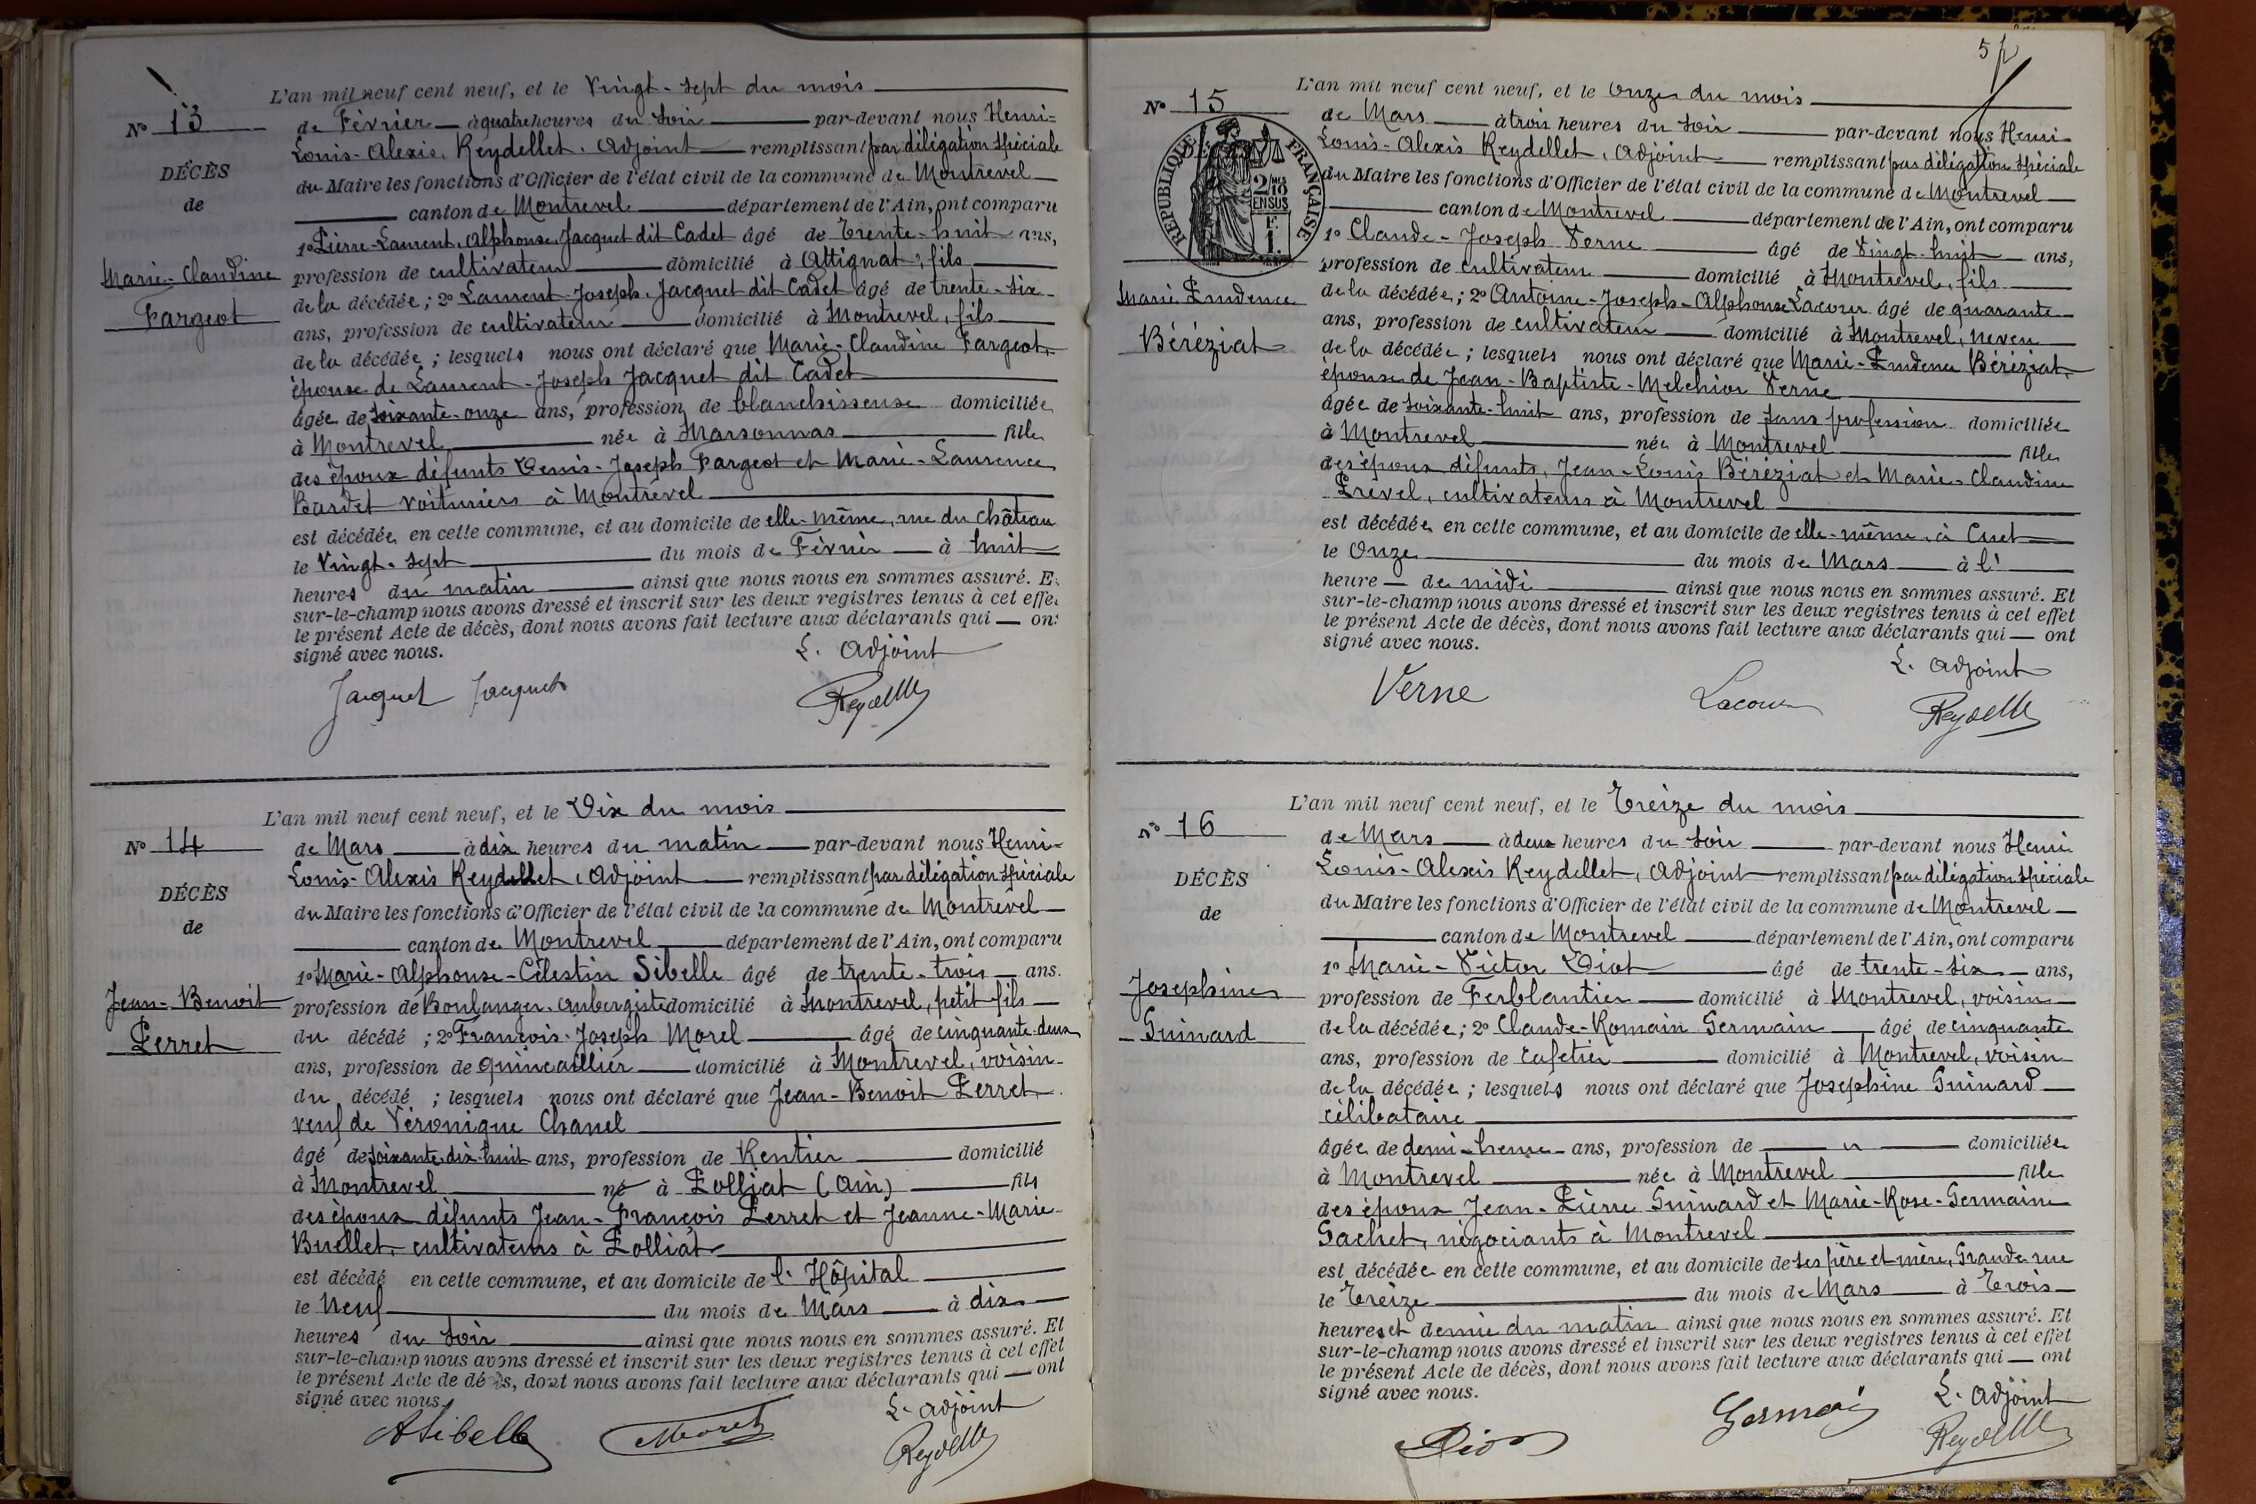 L'an mil neuf cent neuf, et le Vingt-sept du mois
N° 13
de Février à quatre heures du soir par-devant nous Henri-
Louis-Alexis Reydellet, Adjoint remplissant par délégation spéciale
du Maire les fonctions d'Officier de l'état civil de la commune de Montrevel
DÉCÈS
de
canton de Montrevel département de l'Ain, ont comparu
1° Pierre-Laurent-Alphonse Jacquet dit Cadet âgé de Trente-huit ans,
Marie-Claudine
Fargeot
profession de cultivateur domicilié à Attignat, fils
de la décédée; 2° Laurent-Joseph Jacquet dit Cadet âgé de trente-six
ans, profession de cultivateur domicilié à Montrevel, fils
de la décédée; lesquels nous ont déclaré que Marie-Claudine Fargeot,
épouse de Laurent-Joseph Jacquet dit Cadet
âgée de soixante-onze ans, profession de blanchisseuse domiciliée
à Montrevel née à Marsonnas fille
des époux défunts Denis-Joseph Fargeot et Marie-Laurence
Bardet voituriers à Montrevel
est décédée en cette commune, et au domicile de elle-même, rue du Château
le Vingt-sept du mois de Février à huit
heures du matin ainsi que nous nous en sommes assuré. E
sur-le-champ nous avons dressé et inscrit sur les deux registres tenus à cet effe
le présent Acte de décès, dont nous avons fait lecture aux déclarants qui on
signé avec nous.
L. Adjoint
Jacquet Jacquet Reydellet
L'an mil neuf cent neuf, et le Dix du mois
N° 14
de Mars à dix heures du matin par-devant nous Henri-
Louis-Alexis Reydellet, Adjoint remplissant par délégation spéciale
du Maire les fonctions d'Officier de l'état civil de la commune de Montrevel
DÉCÈS
de
canton de Montrevel département de l'Ain, ont comparu
1° Marie-Alphonse-Célestin Sibelle âgé de trente-trois ans.
Jean-Benoit
Perret
profession de Boulanger-aubergiste domicilié à Montrevel, petit fils
du décédé; 2° François-Joseph Morel âgé de cinquante-deux
ans, profession de quincaillier domicilié à Montrevel, voisin
du décédé; lesquels nous ont déclaré que Jean-Benoit Perret
veuf de Véronique Chanel
âgé de soixante-dix-huit ans, profession de Rentier domicilié
à Montrevel né à Polliat (Ain) fils
des époux défunts Jean-François Perret et Jeanne-Marie
Buellet, cultivateurs à Polliat
est décédé en cette commune, et au domicile de l. Hôpital
le Neuf du mois de Mars à dix
heures du soir ainsi que nous nous en sommes assuré. Et
sur-le-champ nous avons dressé et inscrit sur les deux registres tenus à cet effet
le présent Acte de décès, dont nous avons fait lecture aux déclarants qui ont
signé avec nous.
L. Adjoint
ASibelle Morel Reydellet
5
L'an mil neuf cent neuf, et le Onze du mois
N° 15
de Mars à trois heures du soir par-devant nous Henri-
Louis-Alexis Reydellet, Adjoint remplissant par délégation spéciale
du Maire les fonctions d'Officier de l'état civil de la commune de Montrevel
RÉPUBLIQUE FRANÇAISE
2/10 MES
EN SUS
F.
1.
canton de Montrevel département de l'Ain, ont comparu
1° Claude-Joseph Verne âgé de Vingt-huit ans,
Marie Prudence
Béréziat
profession de cultivateur domicilié à Montrevel, fils
de la décédée; 2° Antoine-Joseph-Alphonse Lacour âgé de quarante
ans, profession de cultivateur domicilié à Montrevel, neveu
de la décédée; lesquels nous ont déclaré que Marie-Prudence Béréziat,
épouse de Jean-Baptiste-Melchior Verne
âgée de soixante-huit ans, profession de sans profession domiciliée
à Montrevel née à Montrevel fille
des époux défunts, Jean-Louis Béréziat et Marie-Claudine
Prevel, cultivateurs à Montrevel
est décédée en cette commune, et au domicile de elle-même, à Cuet
le Onze du mois de Mars à l'
heure de midi ainsi que nous nous en sommes assuré. Et
sur-le-champ nous avons dressé et inscrit sur les deux registres tenus à cet effet
le présent Acte de décès, dont nous avons fait lecture aux déclarants qui ont
signé avec nous.
L. Adjoint
Verne Lacour Reydellet
L'an mil neuf cent neuf, et le Treize du mois
N° 16
de Mars à deux heures du soir par-devant nous Henri
Louis-Alexis Reydellet, Adjoint remplissant par délégation spéciale
du Maire les fonctions d'Officier de l'état civil de la commune de Montrevel
DÉCÈS
de
canton de Montrevel département de l'Ain, ont comparu
1° Marie-Victor Diot âgé de trente-six ans,
Josephine
Guinard
profession de Ferblantier domicilié à Montrevel, voisin
de la décédée; 2° Claude-Romain Germain âgé de cinquante
ans, profession de Cafetier domicilié à Montrevel, voisin
de la décédée; lesquels nous ont déclaré que Josephine Guinard
célibataire
âgée de demi-heure ans, profession de " domiciliée
à Montrevel née à Montrevel fille
des époux Jean-Pierre Guinard et Marie-Rose-Germaine
Gachet, négociants à Montrevel
est décédée en cette commune, et au domicile de ses père et mère, Grande rue
le Treize du mois de Mars à Trois
heures et demie du matin ainsi que nous nous en sommes assuré. Et
sur-le-champ nous avons dressé et inscrit sur les deux registres tenus à cet effet
le présent Acte de décès, dont nous avons fait lecture aux déclarants qui ont
signé avec nous.
L. Adjoint
Diot Germain Reydellet